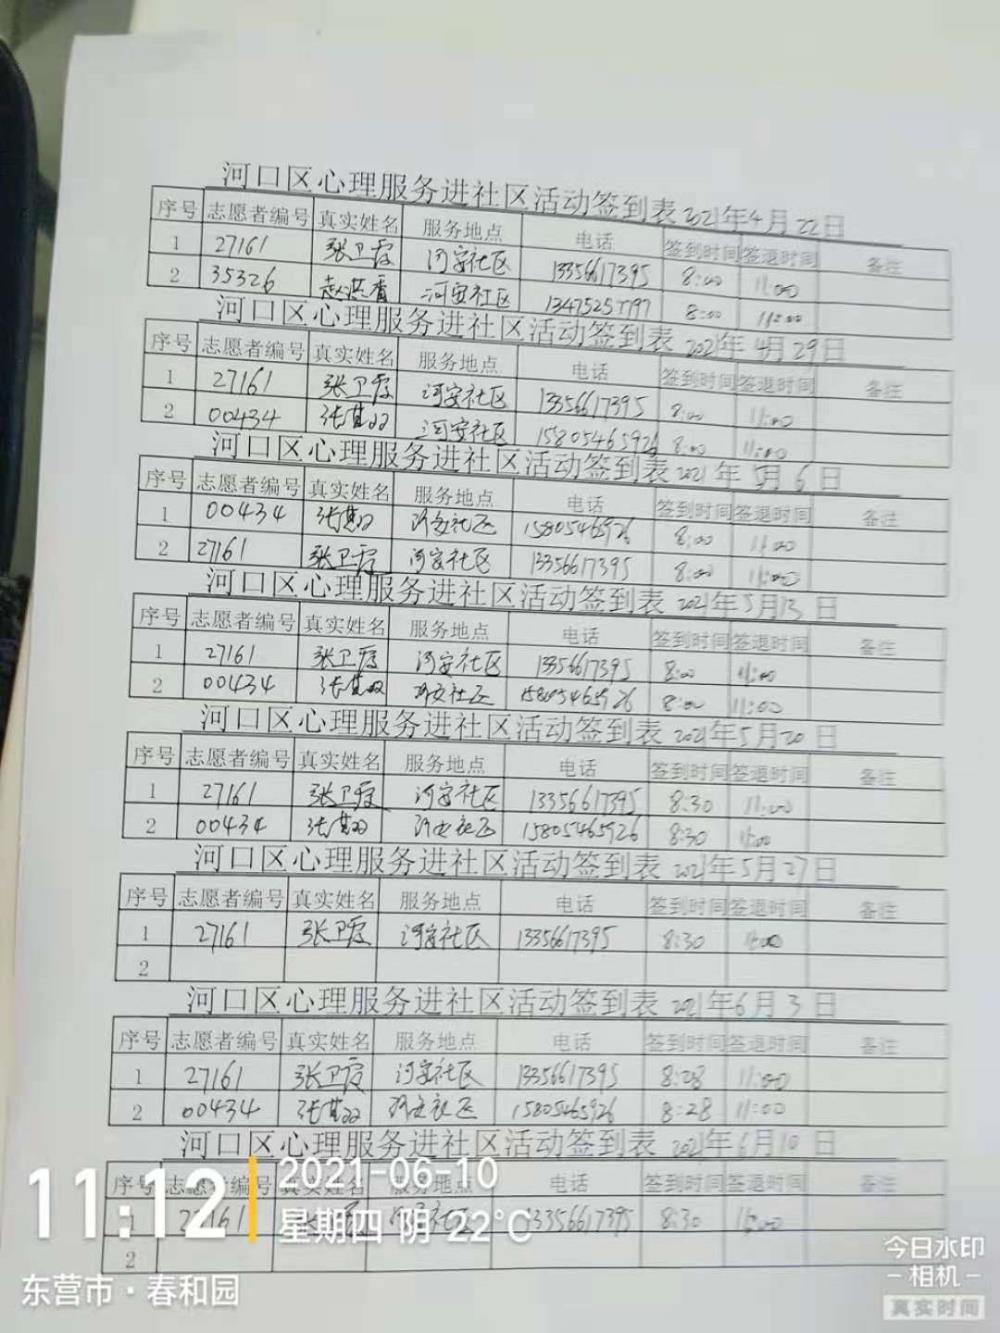 河口区心理服务进社区活动签到表 2021年4月22日
序号 志愿者编号 真实姓名 服务地点 电话 签到时间 签退时间 备注
1 27161 张卫霞 河安社区 13356617395 8:00 11:00
2 35326 赵洪香 河安社区 8:00 11:00
河口区心理服务进社区活动签到表 2021年4月29日
序号 志愿者编号 真实姓名 服务地点 电话 签到时间 签退时间 备注
1 27161 张卫霞 河安社区 13356617395 8:00 11:00
2 00434 河安社区 15805465926 8:00 11:00
河口区心理服务进社区活动签到表 2021年5月6日
序号 志愿者编号 真实姓名 服务地点 电话 签到时间 签退时间 备注
1 00434 河安社区 15805465926 8:00 11:00
2 27161 张卫霞 河安社区 13356617395 8:00 11:00
河口区心理服务进社区活动签到表 2021年5月13日
序号 志愿者编号 真实姓名 服务地点 电话 签到时间 签退时间 备注
1 27161 张卫霞 河安社区 13356617395 8:00 11:00
2 00434 河安社区 15805465926 8:00 11:00
河口区心理服务进社区活动签到表 2021年5月20日
序号 志愿者编号 真实姓名 服务地点 电话 签到时间 签退时间 备注
1 27161 张卫霞 河安社区 13356617395 8:30 11:00
2 00434 河安社区 15805465926 8:30 11:00
河口区心理服务进社区活动签到表 2021年5月27日
序号 志愿者编号 真实姓名 服务地点 电话 签到时间 签退时间 备注
1 27161 张卫霞 河安社区 13356617395 8:30 11:00
2
河口区心理服务进社区活动签到表 2021年6月3日
序号 志愿者编号 真实姓名 服务地点 电话 签到时间 签退时间 备注
1 27161 张卫霞 河安社区 13356617395 8:28 11:00
2 00434 河安社区 15805465926 8:28 11:00
河口区心理服务进社区活动签到表 2021年6月10日
序号 志愿者编号 真实姓名 服务地点 电话 签到时间 签退时间 备注
1 27161 13356617395 8:30
2
11:12
2021-06-10
星期四 阴 22℃
东营市·春和园
今日水印
-相机-
真实时间